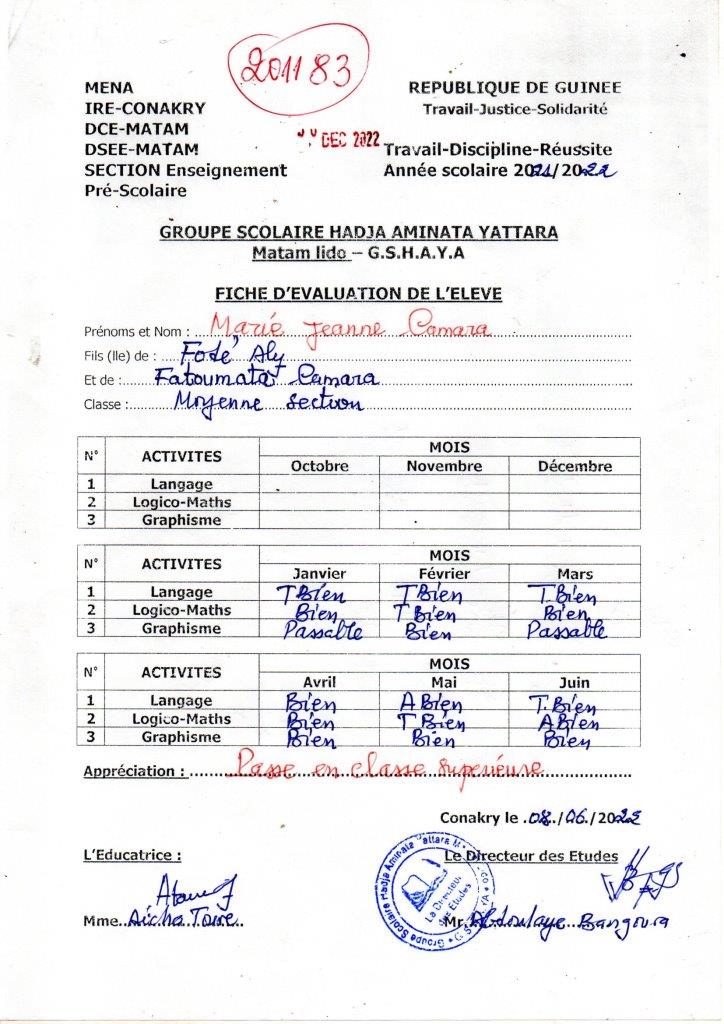 201183
MENA
REPUBLIQUE DE GUINEE
IRE-CONAKRY
Travail-Justice-Solidarité
DCE-MATAM
DEC 2022
DSEE-MATAM
Travail-Discipline-Réussite
SECTION Enseignement
Année scolaire 2021/2022
Pré-Scolaire
GROUPE SCOLAIRE HADJA AMINATA YATTARA
Matam lido – G.S.H.A.Y.A
FICHE D'EVALUATION DE L'ELEVE
Prénoms et Nom : Marie Jeanne Camara
Fils (lle) de : Fodé Aly
Et de : Fatoumata Camara
Classe : Moyenne section
N° ACTIVITES MOIS
Octobre Novembre Décembre
1 Langage
2 Logico-Maths
3 Graphisme
N° ACTIVITES MOIS
Janvier Février Mars
1 Langage TBien TBien T.Bien
2 Logico-Maths Bien TBien Bien
3 Graphisme Passable Bien Passable
N° ACTIVITES MOIS
Avril Mai Juin
1 Langage Bien ABien T.Bien
2 Logico-Maths Bien TBien ABien
3 Graphisme Bien Bien Bien
Appréciation : Passe en classe superieure
Conakry le 08/06/2022
L'Educatrice :
Le Directeur des Etudes
Groupe Scolaire Hadja Aminata
Le Directeur
des Etudes
Mme Aicha Toure
Mr Abdoulaye Bangoura